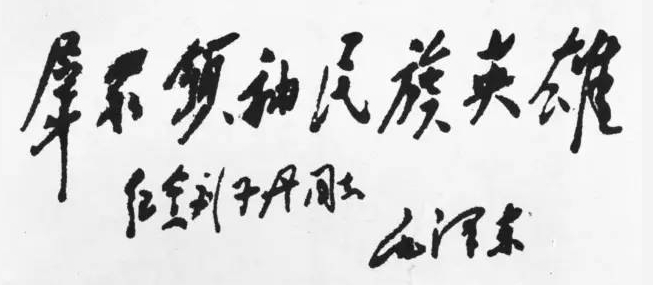 羣众領袖民族英雄
纪念刘子丹同志
毛澤东